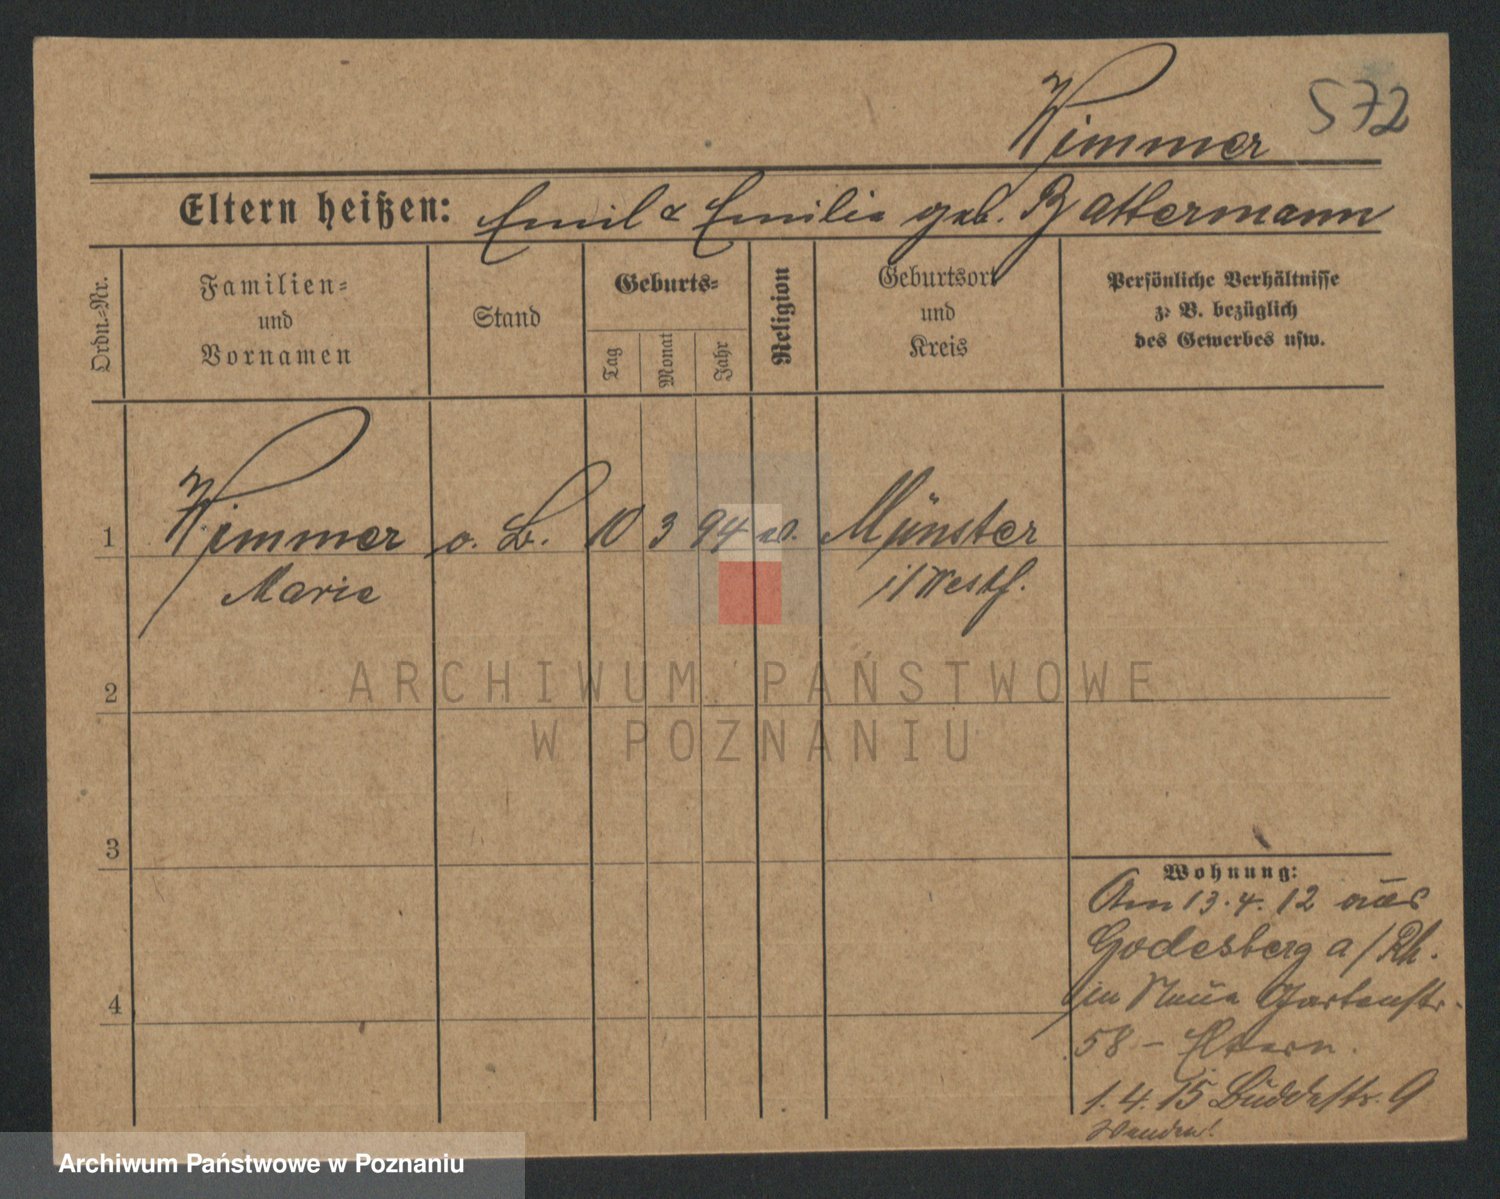 Kimmer 572
Eltern heißen: Emil & Emilie geb. Battermann
Ordn.-Nr.
Familien-
und
Vornamen
Stand
Geburts-
Tag
Monat
Jahr
Religion
Geburtsort
und
Kreis
Persönliche Verhältnisse
z. B. bezüglich
des Gewerbes usw.
1 Kimmer o. B. 10 3 94 Münster
Marie i/Westf.
2
3
4
Wohnung:
Am 13.4.12 aus
Godesberg a/Rh.
in Neue Gartenstr.
58 – Eltern.
1.4.15 Buddestr. 9
Wenden!
ARCHIWUM PAŃSTWOWE
W POZNANIU
Archiwum Państwowe w Poznaniu